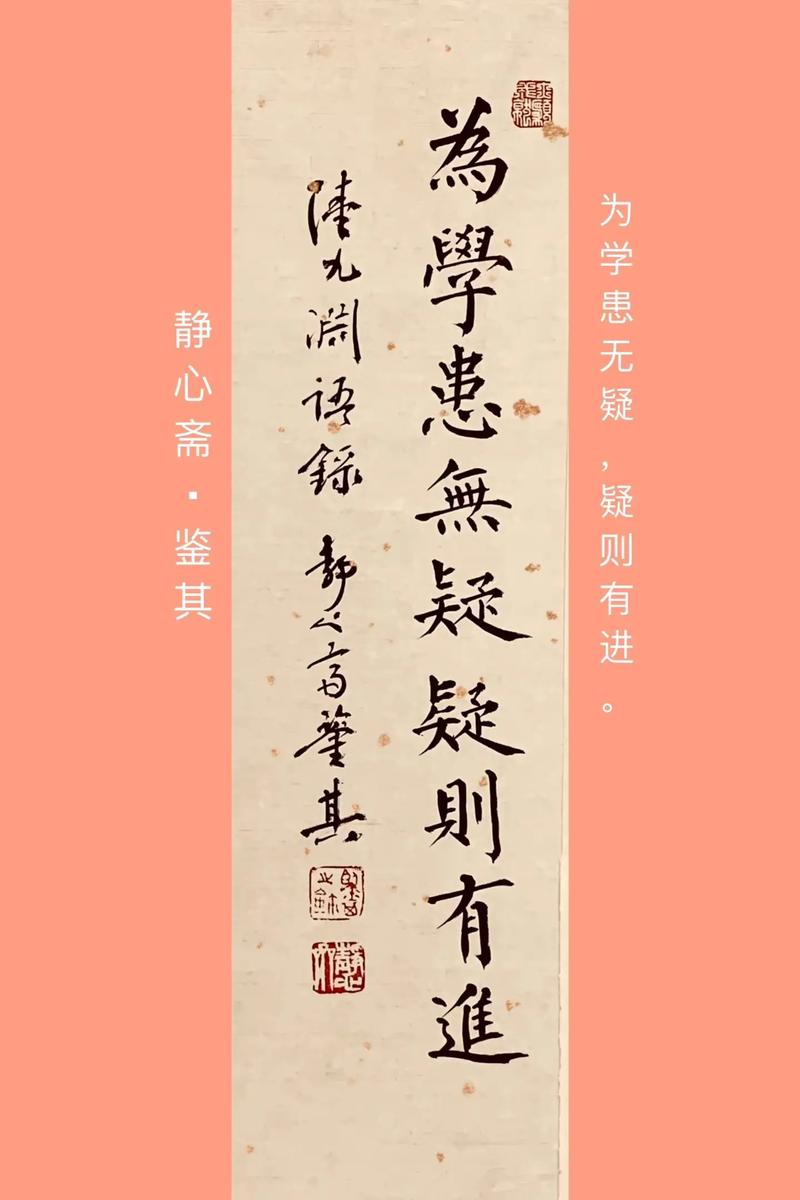 为学患无疑，疑则有进。
為學患無疑疑則有進
陸九淵語錄 靜心齋鑒其
静心斋·鉴其